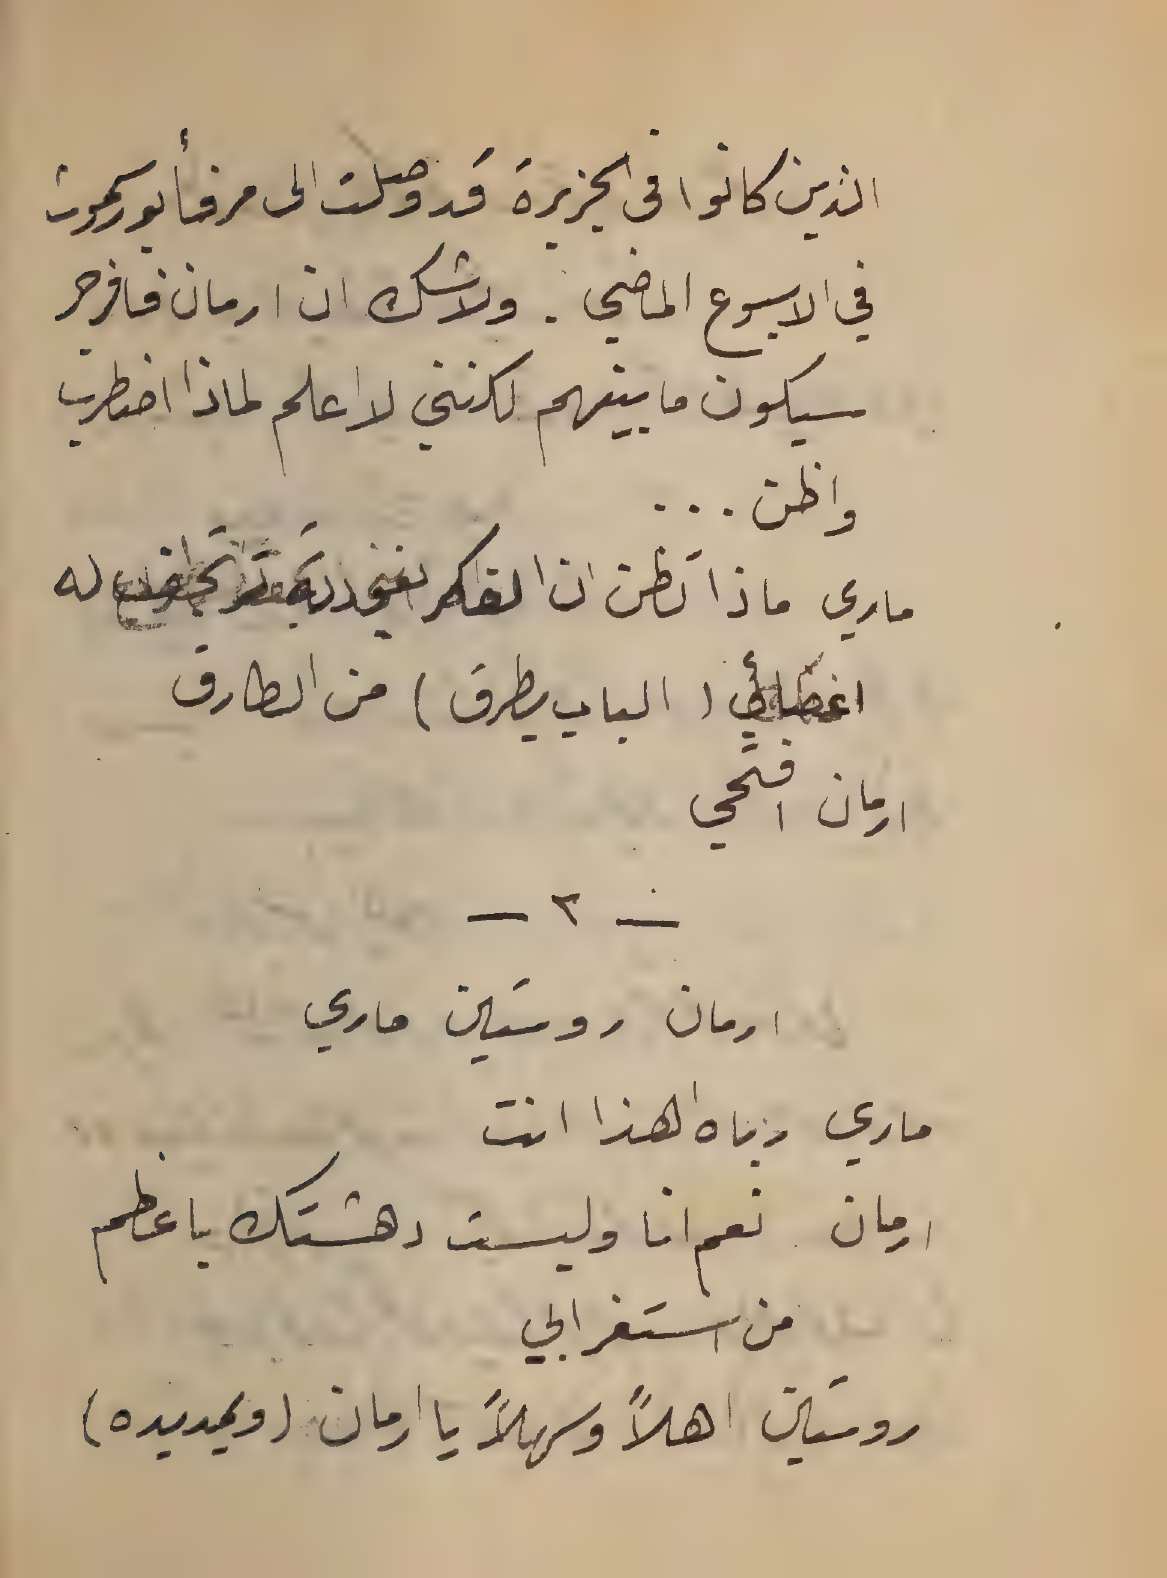 الذين كانوا فى الجزيرة قد وصلت الى مرفأ بورسموث
في الاسبوع الماضي . ولاشك ان ارمان فافرجر
سيكون ما بينهم لكنني لا اعلم لماذا اضطرب
واظن ...
ماري ماذا تظن ان الفاكر له
(الباب يطرق) من الطارق
ارمان افتحي
— ٢ —
ارمان روستين ماري
ماري رباه اهذا انت
ارمان نعم انا وليست دهشتك باعظم
من استغرابي
روستين اهلاً وسهلاً يا ارمان (ويمديده)